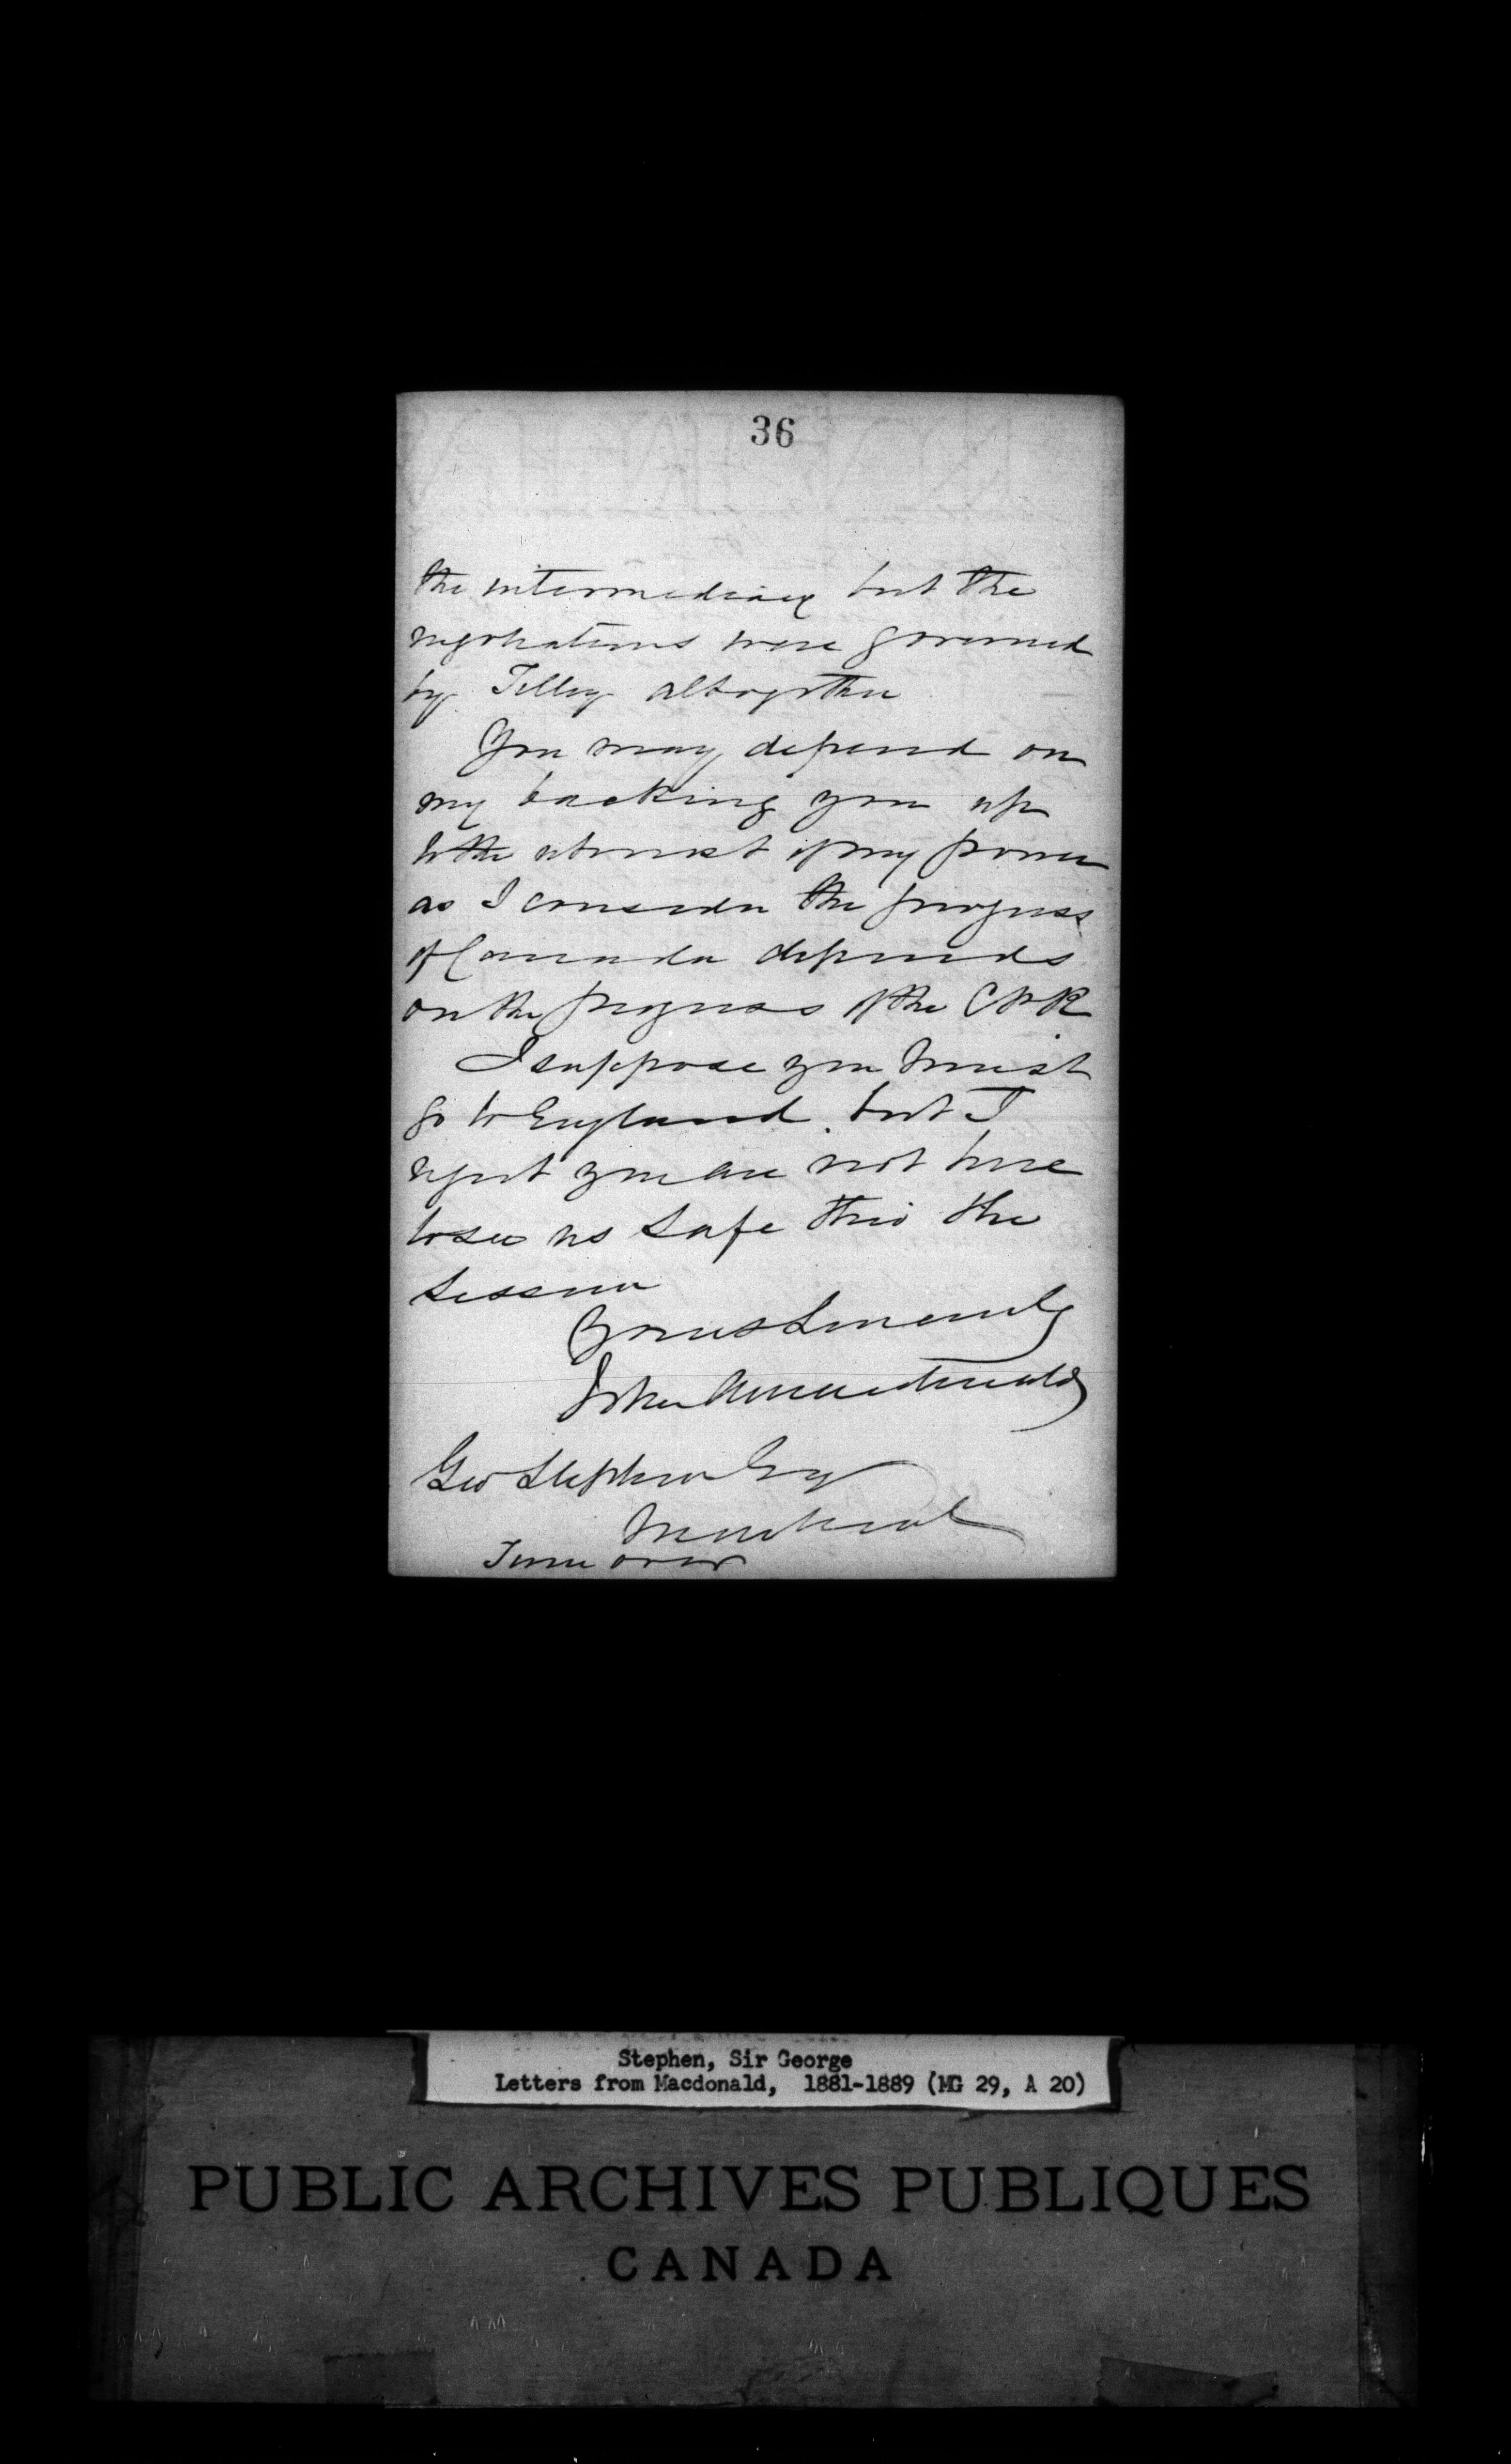 36
the intermediary but the
negotiations were governed
by Tilley altogether
You may depend on
my backing you up
to the utmost of my power
as I consider the progress
of Canada depends
on the progress of the CPR
I suppose you must
go to England. but I
regret you are not here
to see us safe thro the
Session
Yours sincerely
John A Macdonald
Geo Stephen Esq
Montreal
Turn over
Stephen, Sir George
Letters from Macdonald, 1881-1889 (MG 29, A 20)
PUBLIC ARCHIVES PUBLIQUES
CANADA